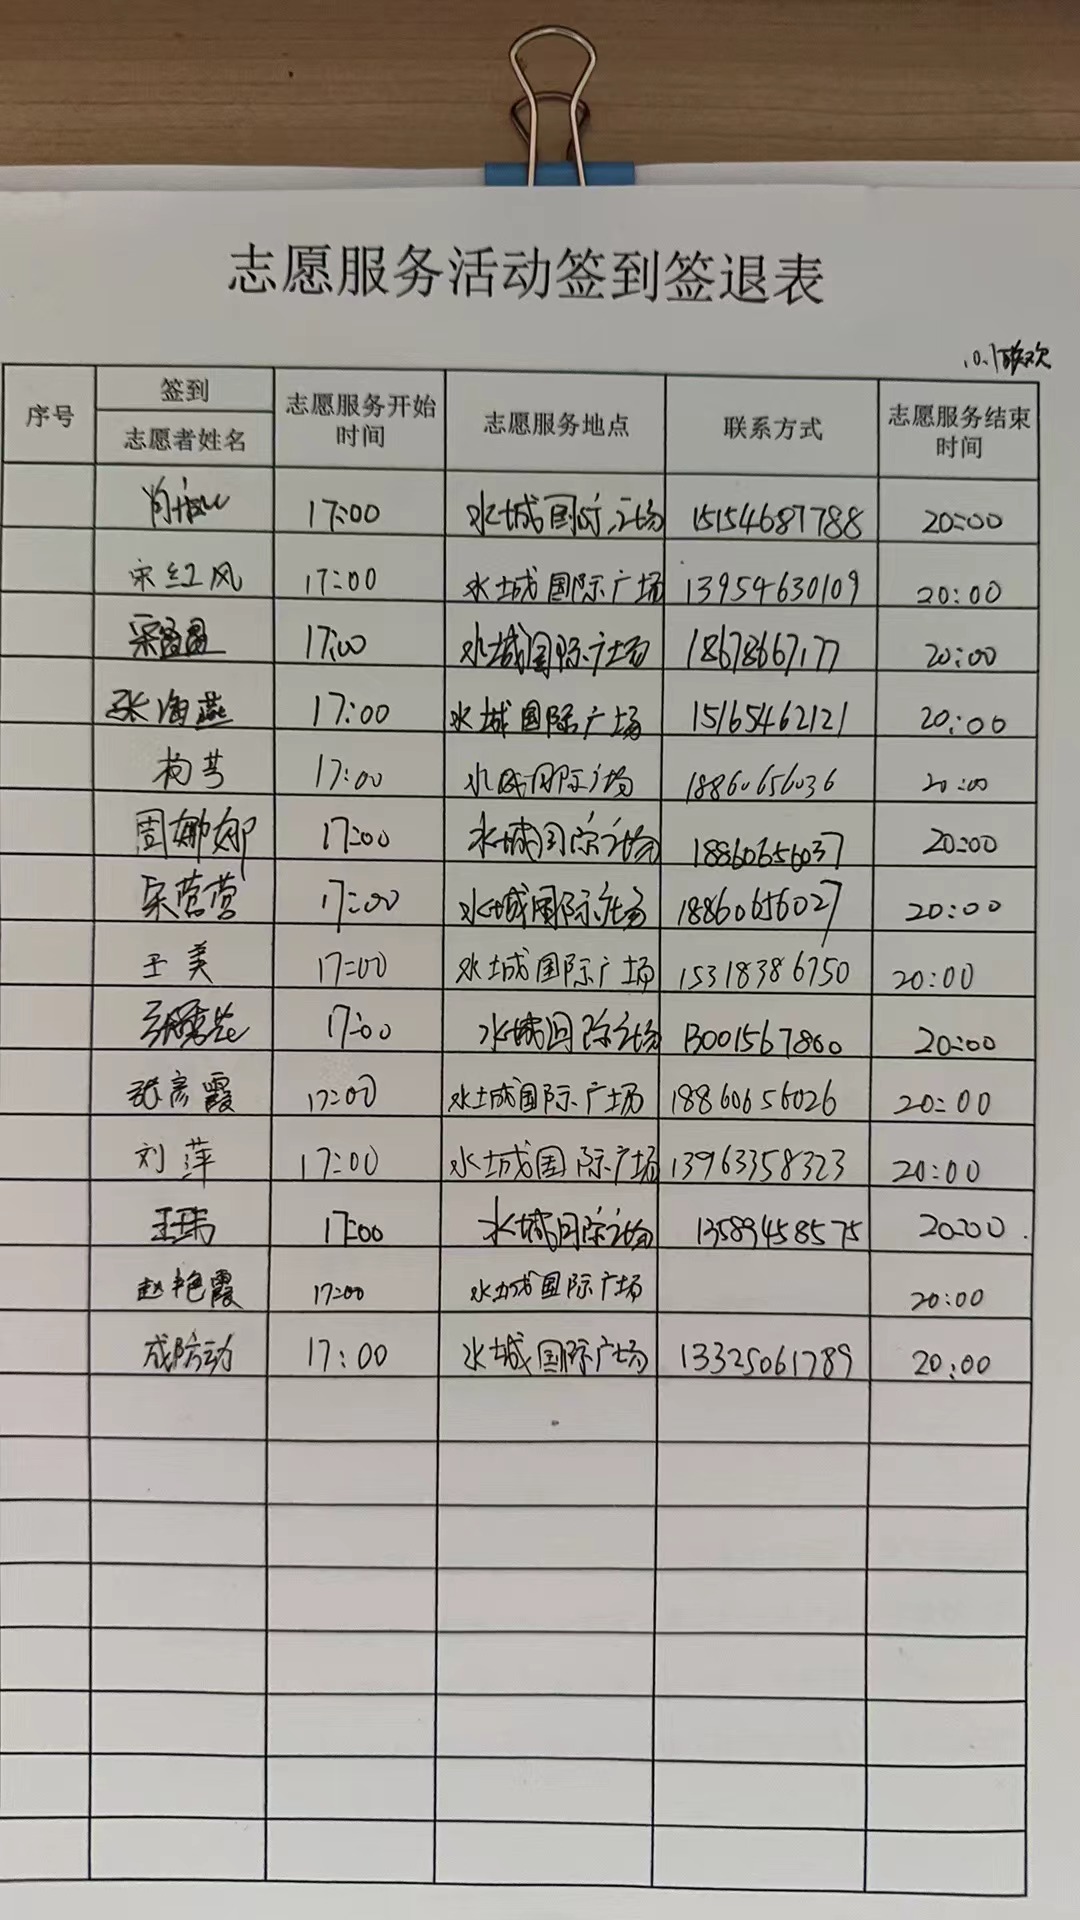 志愿服务活动签到签退表
10.1联欢
序号 签到 志愿服务开始时间 志愿服务地点 联系方式 志愿服务结束时间
志愿者姓名
17:00 水城国际广场 15154687788 20:00
宋红风 17:00 水城国际广场 13954630109 20:00
17:00 水城国际广场 18678667177 20:00
张海燕 17:00 水城国际广场 15165462121 20:00
17:00 水城国际广场 18860656036 20:00
周娜娜 17:00 水城国际广场 18860656037 20:00
宋营营 17:00 水城国际广场 18860656027 20:00
王美 17:00 水城国际广场 15318386750 20:00
17:00 水城国际广场 13001567860 20:00
张彦霞 17:00 水城国际广场 18860656026 20:00
刘萍 17:00 水城国际广场 13963358323 20:00
王玮 17:00 水城国际广场 13589458575 20:00
赵艳霞 17:00 水城国际广场 20:00
成防动 17:00 水城国际广场 13325061789 20:00